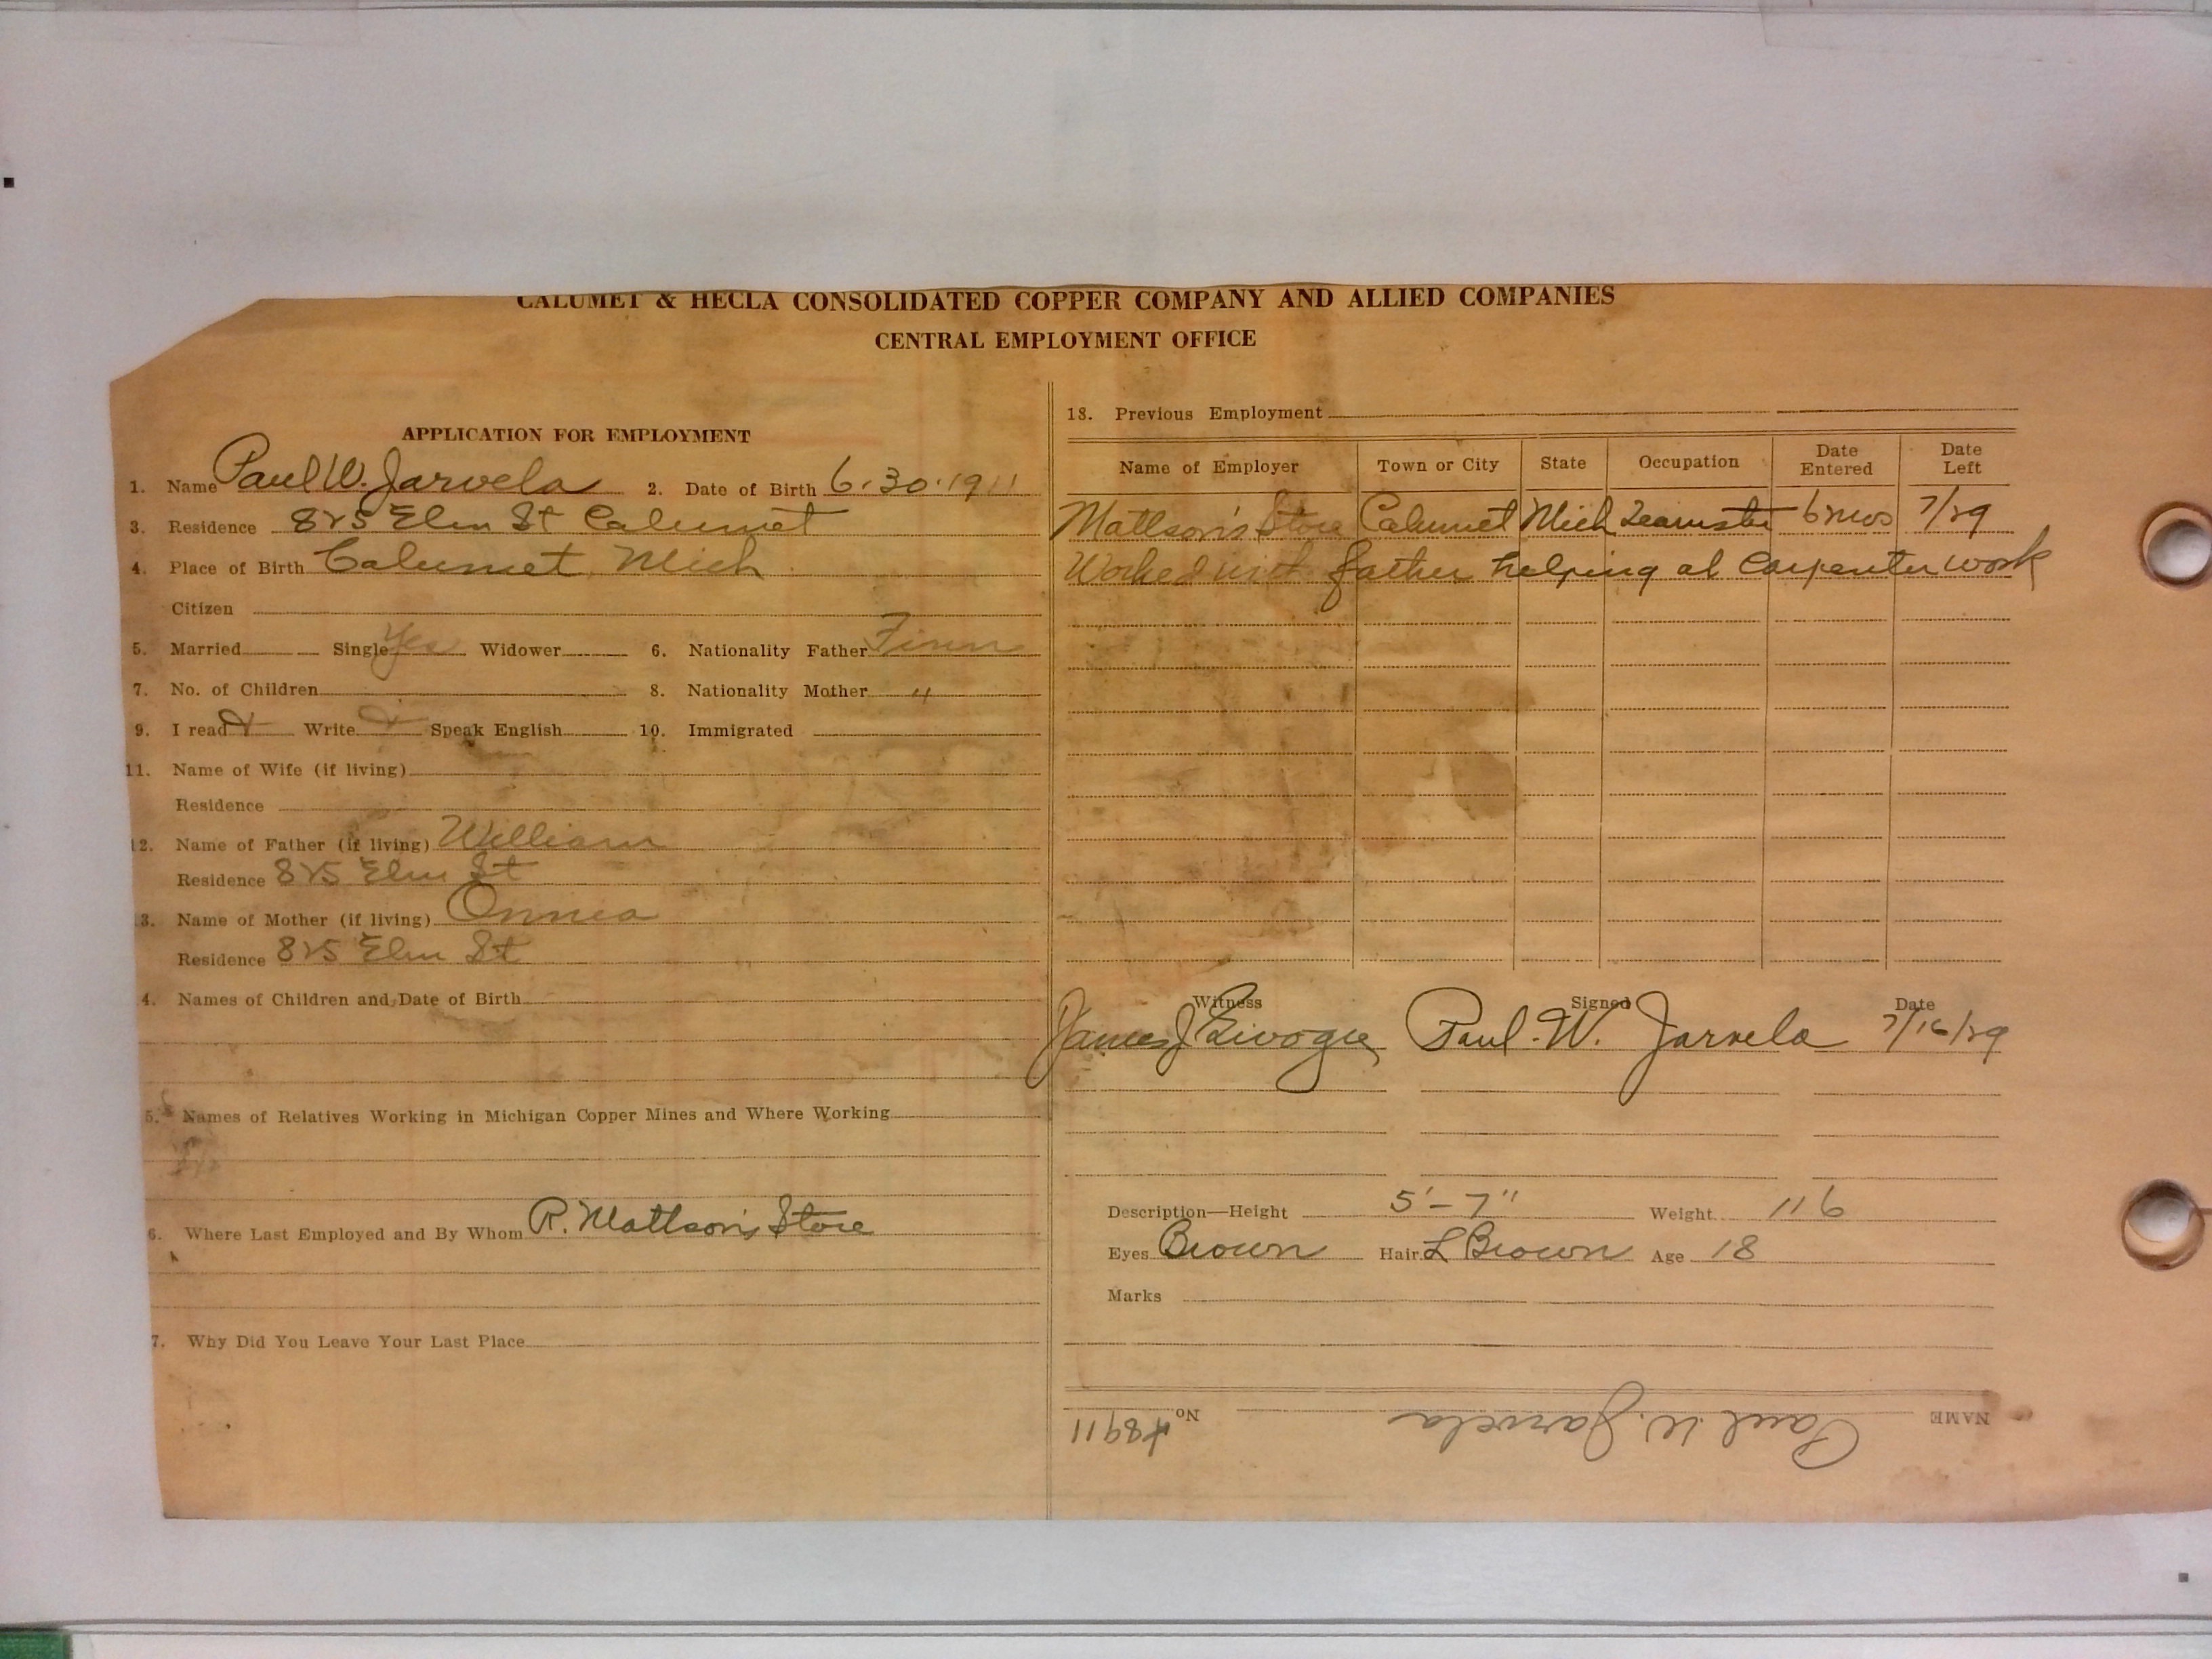 CALUMET & HECLA CONSOLIDATED COPPER COMPANY AND ALLIED COMPANIES
CENTRAL EMPLOYMENT OFFICE
APPLICATION FOR EMPLOYMENT
1. Name Paul W. Jarvela 2. Date of Birth 6.30.1911
3. Residence 825 Elm St Calumet
4. Place of Birth Calumet Mich
Citizen
5. Married Single Yes Widower 6. Nationality Father Finn
7. No. of Children 8. Nationality Mother "
9. I read Write Speak English 10. Immigrated
11. Name of Wife (if living)
Residence
12. Name of Father (if living) William
Residence 825 Elm St
3. Name of Mother (if living) Onnea
Residence 825 Elm St
4. Names of Children and Date of Birth
5. Names of Relatives Working in Michigan Copper Mines and Where Working
6. Where Last Employed and By Whom R. Mattson's Store
7. Why Did You Leave Your Last Place
18. Previous Employment
Name of Employer Town or City State Occupation Date Entered Date Left
Mattson's Store Calumet Mich Teamster 6 mos 7/29
Worked with father helping at Carpenter work
Witness Signed Date
James J Paul. W. Jarvela 7/16/29
Description—Height 5'-7" Weight 116
Eyes Brown Hair L Brown Age 18
Marks
NAME Paul W. Jarvela No. 48911